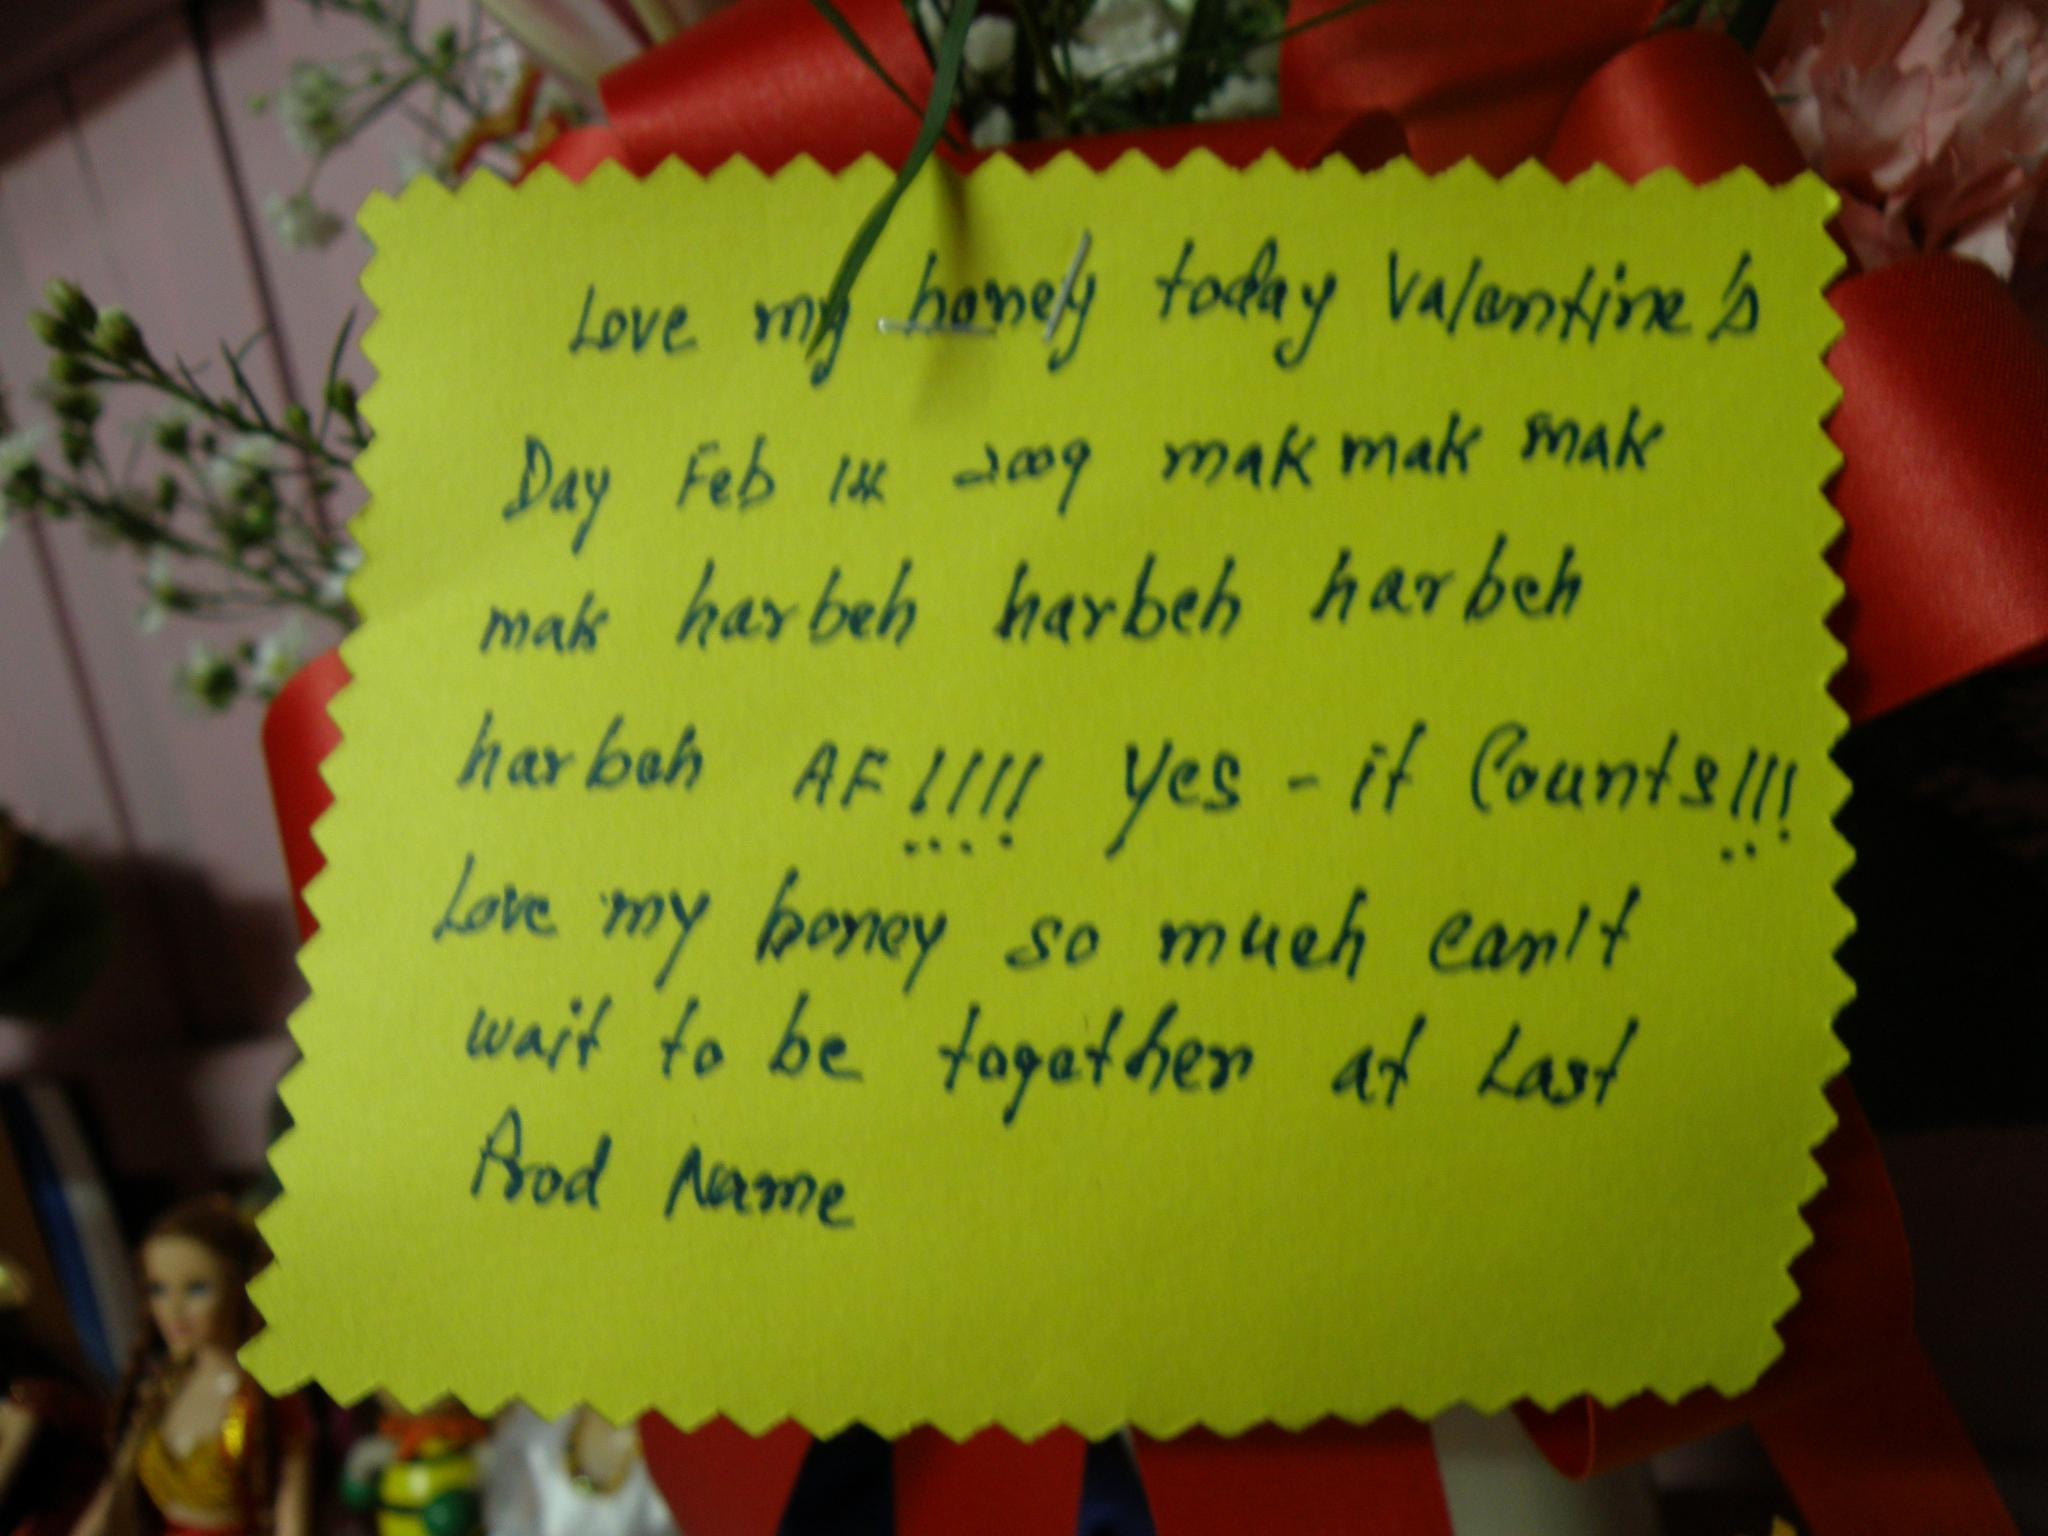 Love my honey today Valentine's
Day Feb 14 2009 mak mak mak
mak harbeh harbeh harbeh
harbeh AF!!!! Yes - it Counts!!!
Love my honey so much can't
wait to be together at Last
Prod Name